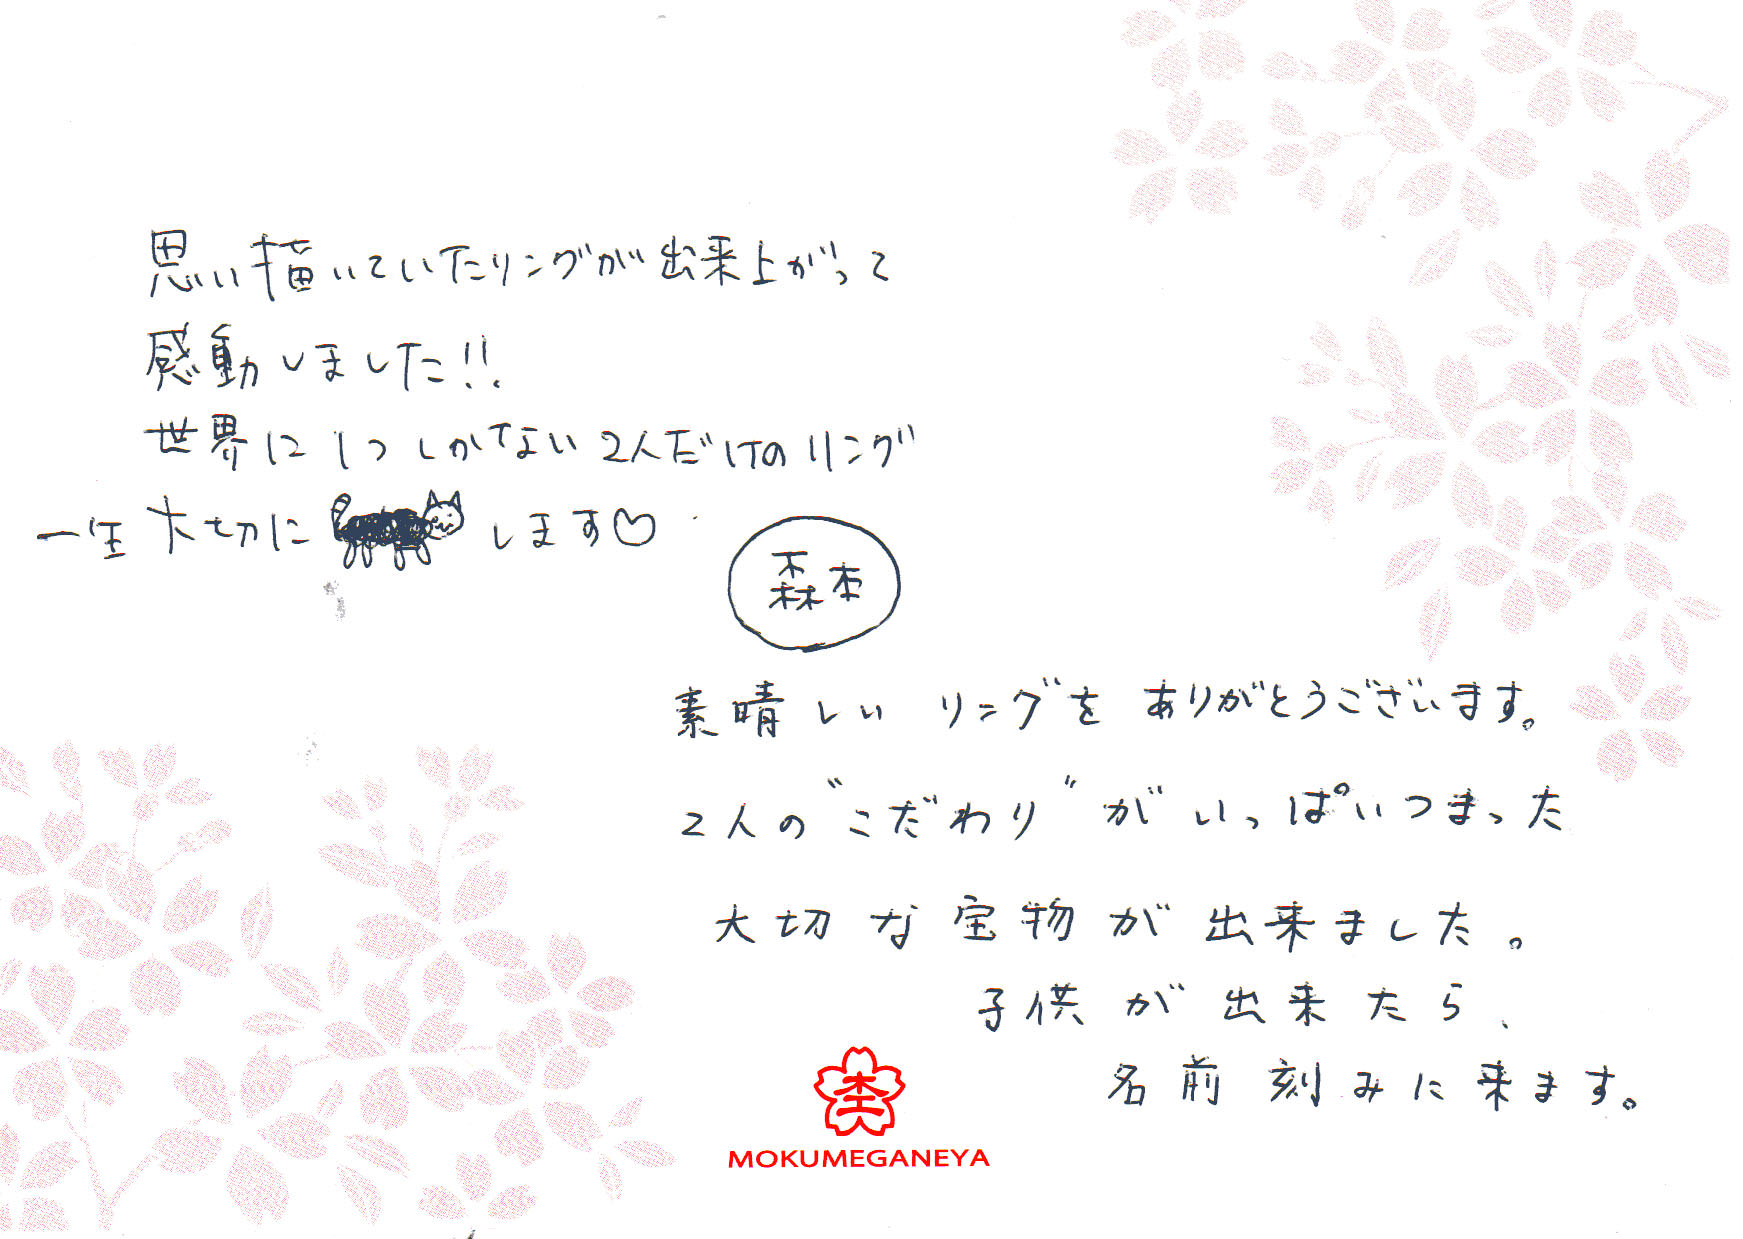 思い描いていたリングが出来上がって
感動しました!!
世界に1つしかない2人だけのリング
一生大切にします♡
森本
素晴しいリングをありがとうございます。
2人の"こだわり"がいっぱいつまった
大切な宝物が出来ました。
子供が出来たら、
名前刻みに来ます。
MOKUMEGANEYA